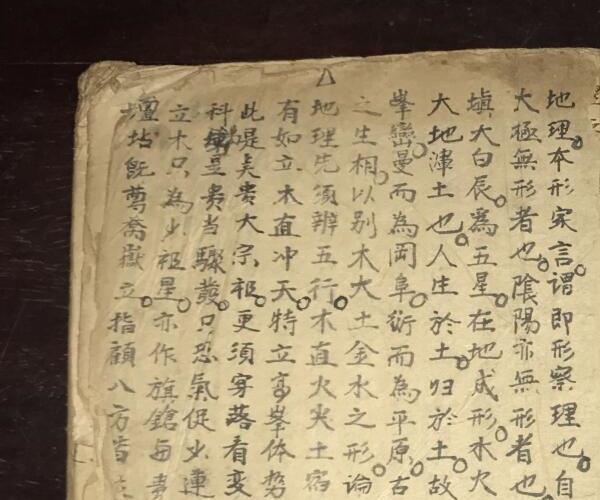 地理本形家言。謂即形察理也。自
大極無形者也。陰陽亦無形者也
塡大白辰。為五星。在地成形。水火
大地渾土也。人生於土。归於土。故
峯巒。曼而為岡阜。衍而為平原。古
之生相。以別木火土金水之形。論
地理先須辨五行。木直火尖土宿
有如立木直冲天。特立高峯体势
此是矣貴大宗祖。更須穿落看变
科是贵当驟發。只恐氣促少連
立木只為少祖星。亦作旗鎗
壇坫既尊喬嶽立。指顧八方皆